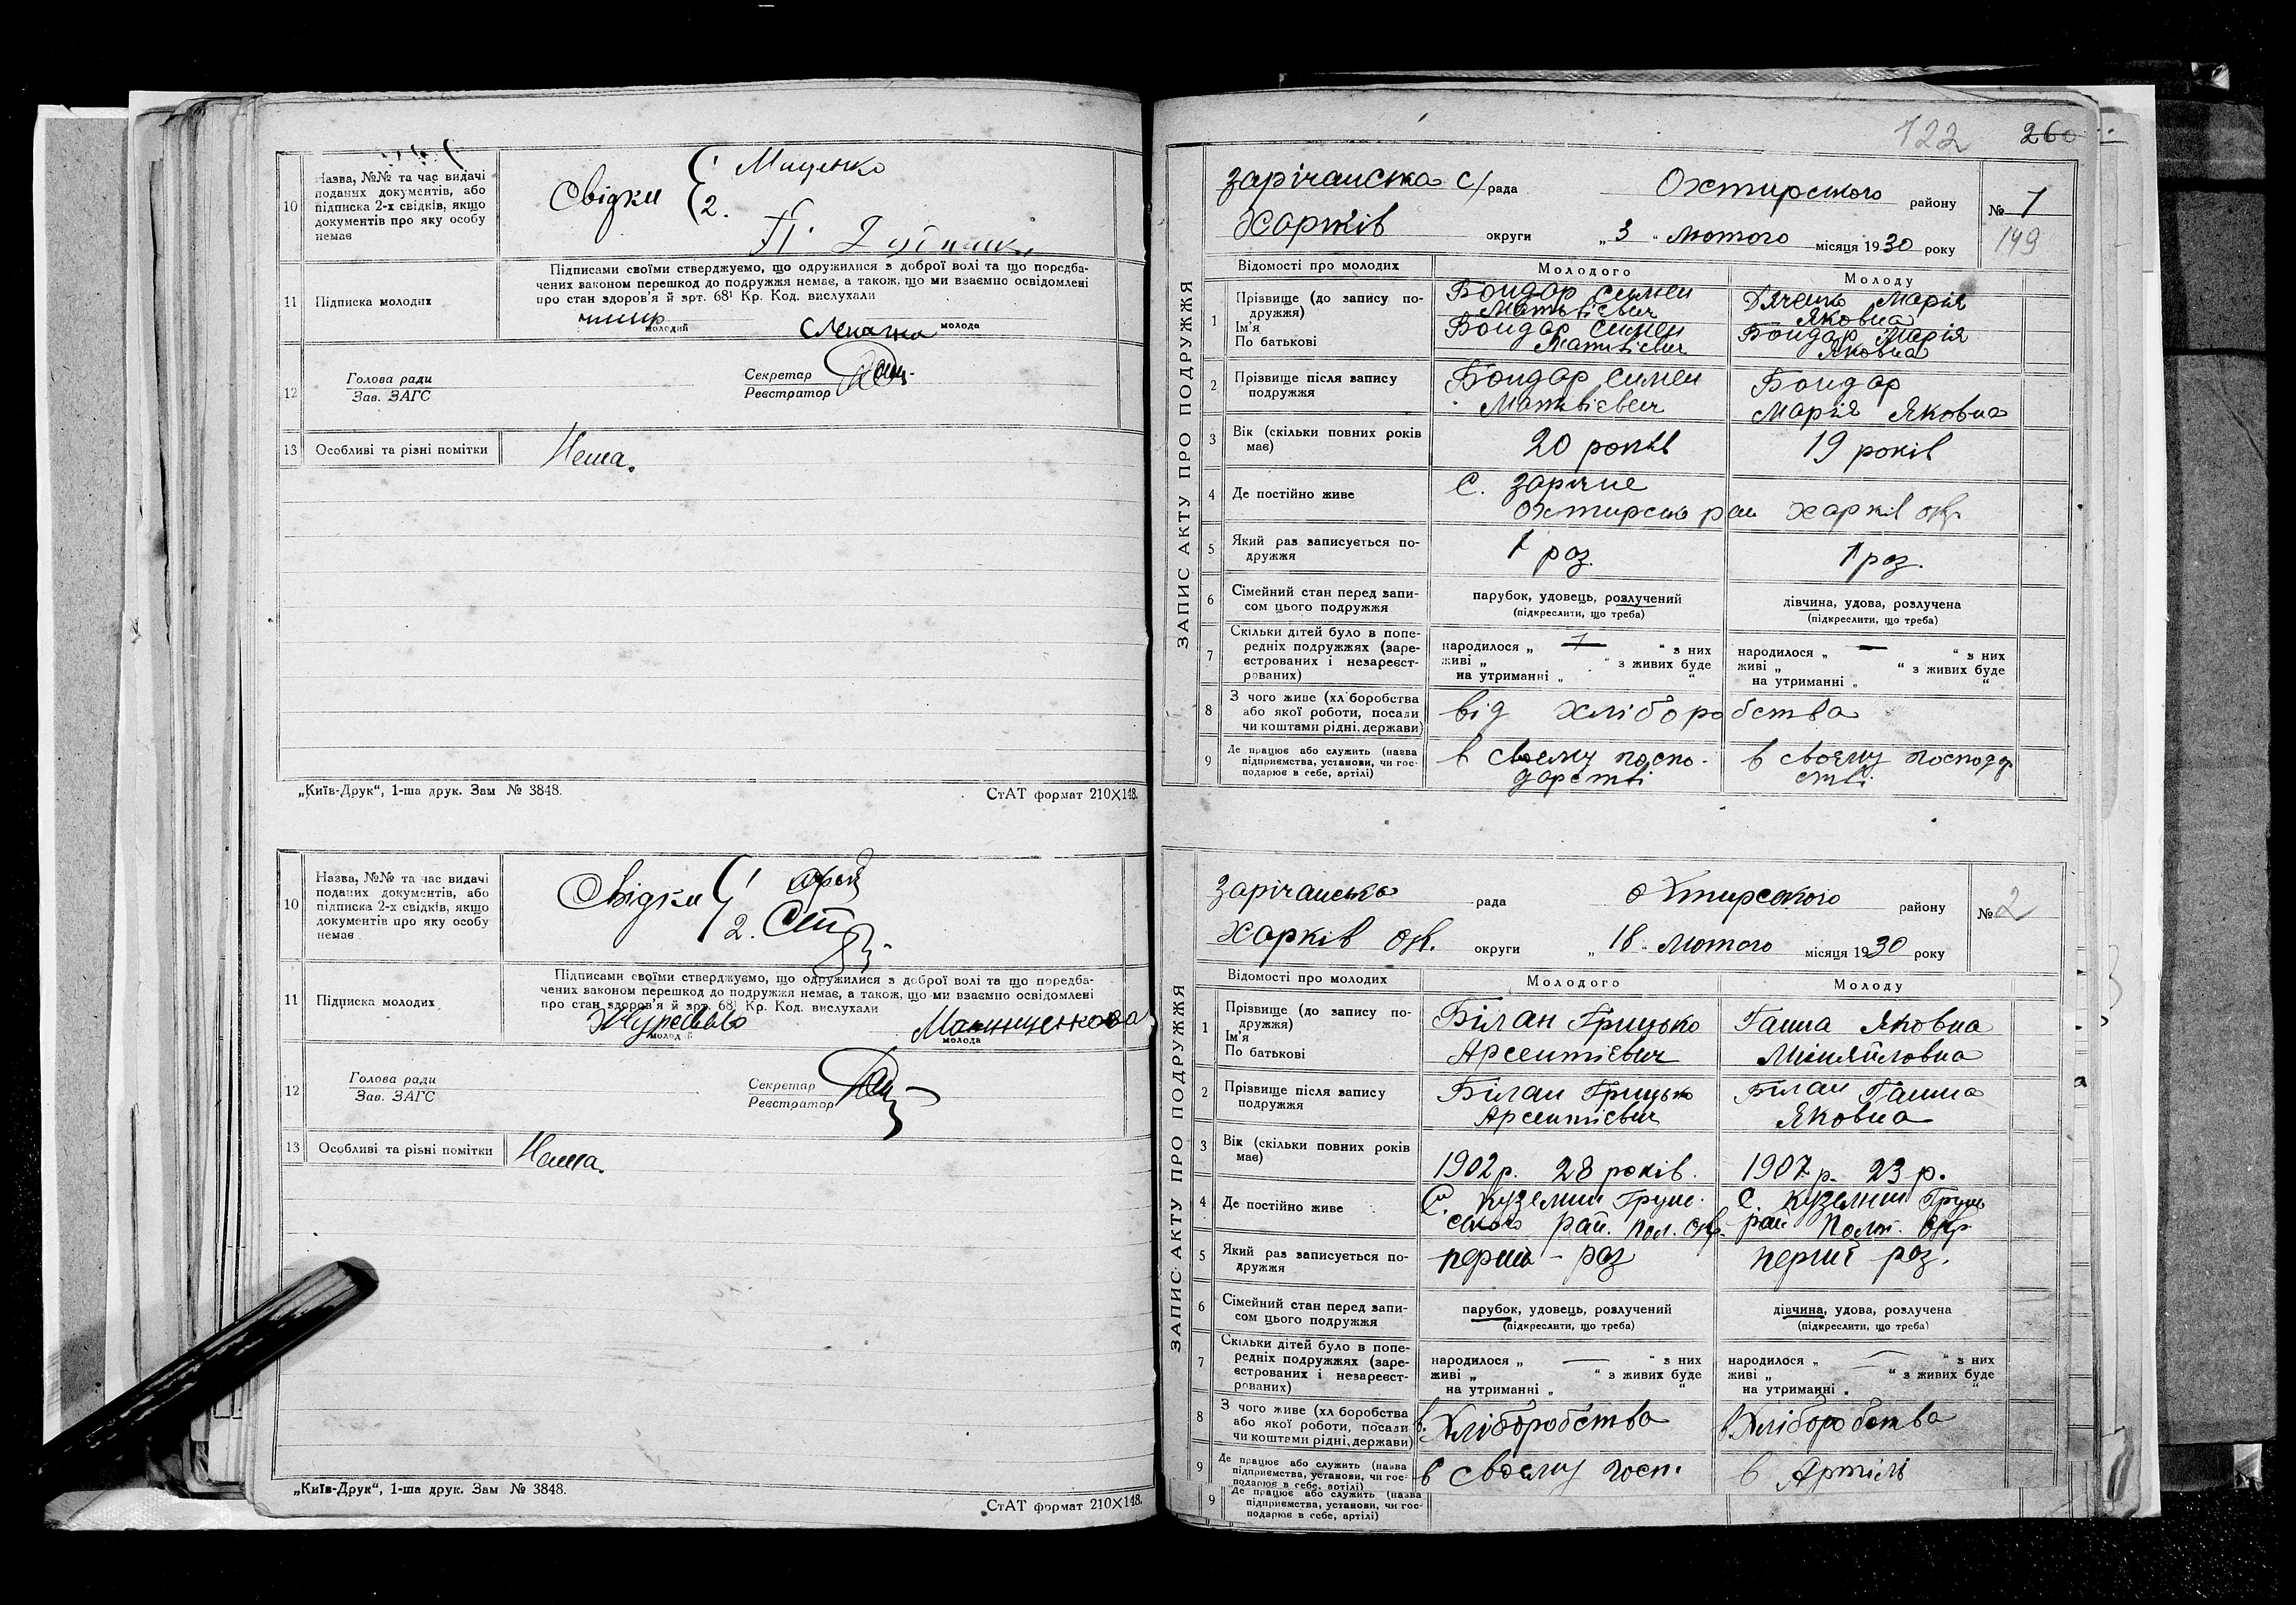 10
Назва, №№ та час видачі
поданих документів, або
підписка 2-х свідків, якщо
документів про яку особу
немає
Свідки
1 Мищенко
2.
11
Підписка молодих
Підписами своїми стверджуємо, що одружилися з доброї волі та що передба-
чених законом перешкод до подружжя немає, а також, що ми взаємно освідомлені
про стан здоров'я й арт. 68¹ Кр. Код. вислухали
молодий
молода
12
Голова ради
Зав. ЗАГС
Секретар
Реєстратор
13
Особливі та різні помітки
Нема.
„Київ-Друк“, 1-ша друк. Зам № 3848.
СтАТ формат 210×148.
10
Назва, №№ та час видачі
поданих документів, або
підписка 2-х свідків, якщо
документів про яку особу
немає
Свідки
1
2.
11
Підписка молодих
Підписами своїми стверджуємо, що одружилися з доброї волі та що передба-
чених законом перешкод до подружжя немає, а також, що ми взаємно освідомлені
про стан здоров'я й арт. 68¹ Кр. Код. вислухали
молодий
молода
12
Голова ради
Зав. ЗАГС
Секретар
Реєстратор
13
Особливі та різні помітки
Нема.
„Київ-Друк“, 1-ша друк. Зам № 3848.
СтАТ формат 210×148.
122 260
ЗАПИС АКТУ ПРО ПОДРУЖЖЯ
зарічанська с/рада Охтирського району № 1
Харків округи „3“ лютого місяця 1930 року
149
Відомості про молодих
Молодого
Молоду
1
Прізвище (до запису по-
дружжя)
Ім'я
По батькові
Бондар Симен
Матвієвич
Бондар Симен
Матвієвич
Дяченко Марія
Яковна
Бондар Марія
Яковна
2
Прізвище після запису
подружжя
Бондар Симен
Матвієвич
Бондар
Марія Яковна
3
Вік (скільки повних років
має)
20 років
19 років
4
Де постійно живе
С. Зарічне
Охтирсько рай Харків окр.
5
Який раз записується по-
дружжя
1 раз.
1 раз.
6
Сімейний стан перед запи-
сом цього подружжя
парубок, удовець, розлучений
(підкреслити, що треба)
дівчина, удова, розлучена
(підкреслити, що треба)
7
Скільки дітей було в попе-
редніх подружжях (заре-
єстрованих і незареєст-
рованих)
народилося „ — “ з них
живі „ “ з живих буде
на утриманні „ “
народилося „ — “ з них
живі „ “ з живих буде
на утриманні „ “
8
З чого живе (хліборобства
або якої роботи, посади
чи коштами рідні, держави)
від хліборобства
9
Де працює або служить (назва
підприємства, установи, чи гос-
подарює в себе, артілі)
в своєму госпо-
дарстві
в своєму господар
стві.
ЗАПИС АКТУ ПРО ПОДРУЖЖЯ
Зарічанська рада Охтирського району № 2
Харків окр. округи „18“ лютого місяця 1930 року
Відомості про молодих
Молодого
Молоду
1
Прізвище (до запису по-
дружжя)
Ім'я
По батькові
Білан Грицько
Арсентієвич
Ганна Яковна
2
Прізвище після запису
подружжя
Білан Грицько
Арсентієвич
Білан Ганна
Яковна
3
Вік (скільки повних років
має)
1902 р. 28 років.
1907 р. 23 р.
4
Де постійно живе
С. Куземин Грунь
ського рай. Пол. окр.
С. Куземин Грунь
рай Полт. окр
5
Який раз записується по-
дружжя
перший - раз
перший раз.
6
Сімейний стан перед запи-
сом цього подружжя
парубок, удовець, розлучений
(підкреслити, що треба)
дівчина, удова, розлучена
(підкреслити, що треба)
7
Скільки дітей було в попе-
редніх подружжях (заре-
єстрованих і незареєст-
рованих)
народилося „ — “ з них
живі „ “ з живих буде
на утриманні „ “
народилося „ — “ з них
живі „ “ з живих буде
на утриманні „ “
8
З чого живе (хліборобства
або якої роботи, посади
чи коштами рідні, держави)
в. Хліборобства
в Хліборобства
9
Де працює або служить (назва
підприємства, установи, чи гос-
подарює в себе, артілі)
в своєму госп.
в Артілі
9
Де працює або служить (назва
підприємства, установи, чи гос-
подарює в себе, артілі)